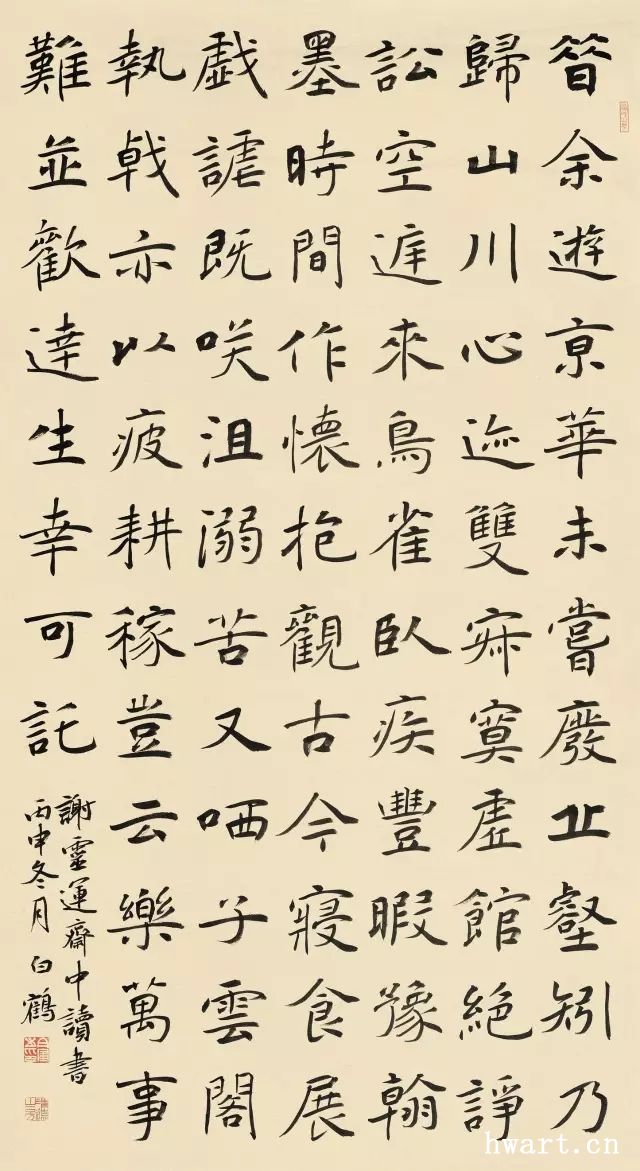 昔余遊京華未嘗廢丘壑矧乃
歸山川心迹雙寂寞虛館絕諍
訟空庭來鳥雀臥疾豐暇豫翰
墨時間作懷抱觀古今寢食展
戲謔既咲沮溺苦又哂子雲閣
執戟亦以疲耕稼豈云樂萬事
難並歡達生幸可託
謝靈運齋中讀書
丙申冬月白鶴
hwart.cn